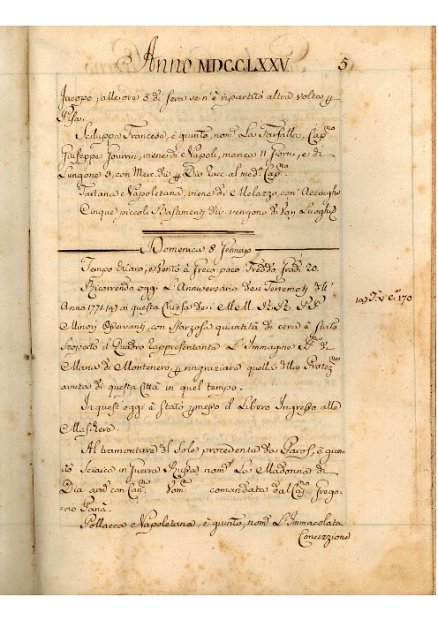 Anno MDCCLXXV 5
Jacopo; alle ore 5 di sera se n'è ripartito altra volta p
Pisa.
Sciluppo Francese, è giunto, nom. La Farfalla, Cap.
Giuseppe viene di Napoli, manca 11 giorni, e di
Longone 3, con Merc. div. p Dio Racc. al med. Cap.
Tartana Napoletana, viene di Melazzo, con Acciughe
Cinque piccoli Bastimenti div. vengono di Van Luoghi
Domenica 8 Gennajo
Tempo chiaro, e Vento à Greco poco freddo Gradi 20.
Ricorrendo oggi L'Anniversario dei Terremoti dell'
Anno 1742 in questa Chiesa dei M.M. R.R. P.P.
Minori Osservanti, con sforzosa quantità di cera è stato
scoperto il Quadro rappresentante L'Immagine SS. di
Maria di Montenero, p ringraziarla quella della Protez.
avuta di questa Città in quel tempo.
In quest'oggi è stato permesso il Libero Ingresso alle
Maschere.
Al tramontare del Sole procedente da Paros, è giun-
to Sciaicco in Guerra Russo nom. La Madonna di
Dia arm. con Can. Vom. comandata dal Cap. Grego-
rio Panà.
Pollacca Napoletana, è giunta, nom. L'Immacolata
Concezione
170